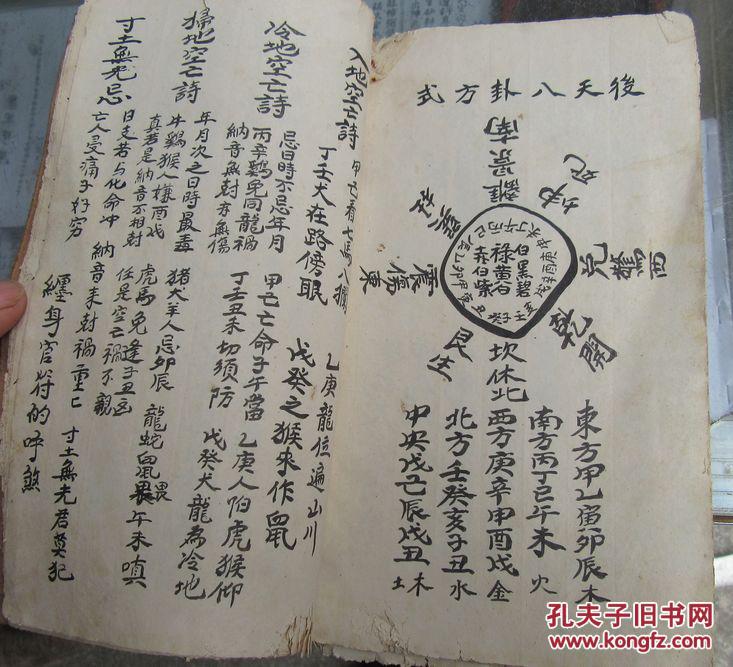 後天八卦方式
離景南
坤死
兌驚西
乾開
坎休北
艮生
震傷東
巽杜
白黑碧
祿黄谷
赤白紫
東方甲乙寅卯辰木
南方丙丁巳午未火
西方庚辛申酉戌金
北方壬癸亥子丑水
中央戊己辰戌丑未土
入地空亡詩
甲己看七馬八獄
乙庚龍位遍山川
丁壬犬在路傍眠
戊癸之猴來作鼠
冷地空亡詩
忌日時不忌年月
甲己亡命子午當
乙庚人怕虎猴仰
丙辛鷄兔同龍禍
丁壬丑未切須防
戊癸犬龍為冷地
納音無尅亦無傷
掃地空亡詩
年月次之日時最毒
猪犬羊人忌卯辰
龍蛇鼠畏午未嗔
牛鷄猴人嫌酉戌
虎馬兔逢子丑凶
真若是納音不相尅
任是空亡禍不親
寸土無光忌
日支若与化命冲
納音来尅禍重亡
寸土無光君莫犯
亡人受痛子好穷
纏身官符的呼煞
孔夫子旧书网
www.kongfz.com